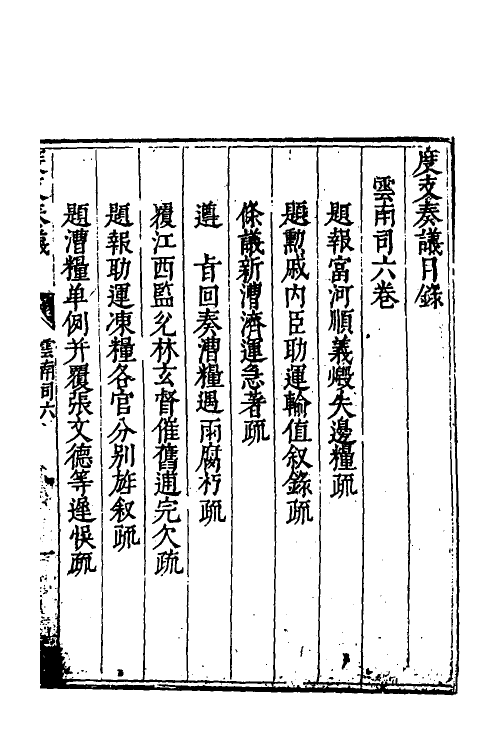 度支奏議目錄
雲南司六卷
題報富河順義燬失邊糧疏
題勲戚內臣助運輸值叙錄疏
條議新漕濟運急著疏
遵　旨回奏漕糧遇雨腐朽疏
覆江西監兌林玄督催舊逋完欠疏
題報助運凍糧各官分別旌叙疏
題漕糧单例并覆張文德等遲悞疏
度支奏議　雲南司六